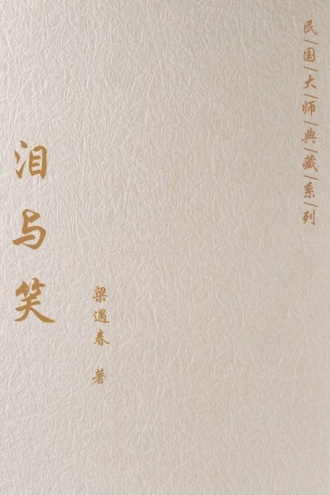 民国大师典藏系列
泪与笑
梁遇春 著